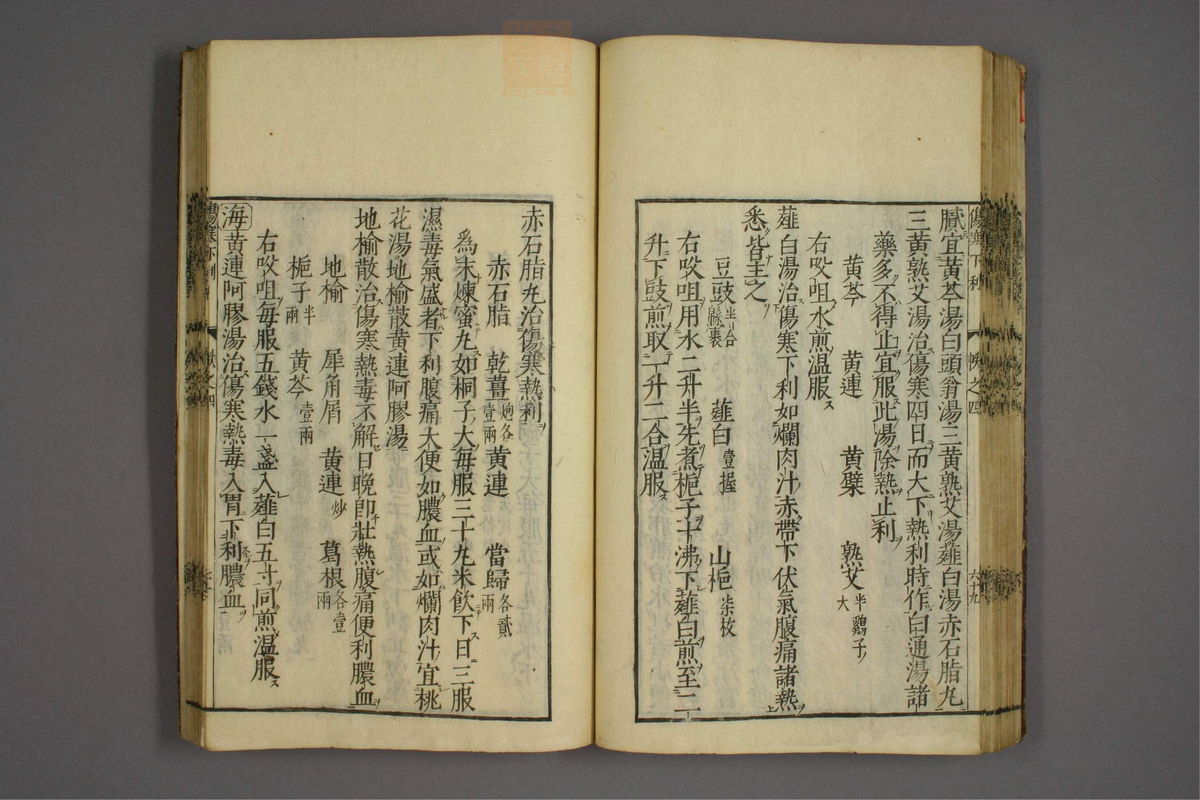 膩宜黃芩湯白頭翁湯三黃熟艾湯薤白湯赤石脂丸
三黃熟艾湯治傷寒四日而大下熱利時作白通湯諸
藥多不得止宜服此湯除熱止利
黃芩 黃連 黃檗 熟艾半鷄子大
右㕮咀水煎溫服
薤白湯治傷寒下利如爛肉汁赤帶下伏氣腹痛諸熱
悉皆主之
豆豉半合緜裹 薤白壹握 山梔柒枚
右㕮咀用水二升半先煮梔子十沸下薤白煎至二
升下豉煎取一升二合溫服
赤石脂丸治傷寒熱利
赤石脂 乾薑炮各壹兩 黃連 當歸各貳兩
爲末煉蜜丸如桐子大每服三十丸米飲下日三服
濕毒氣盛者下利腹痛大便如膿血或如爛肉汁宜桃
花湯地榆散黃連阿膠湯
地榆散治傷寒熱毒不解日晚即壯熱腹痛便利膿血
地榆 犀角屑 黃連炒 葛根各壹兩
梔子半兩 黃芩壹兩
右㕮咀每服五錢水一盞入薤白五寸同煎溫服
海黃連阿膠湯治傷寒熱毒入胃下利膿血